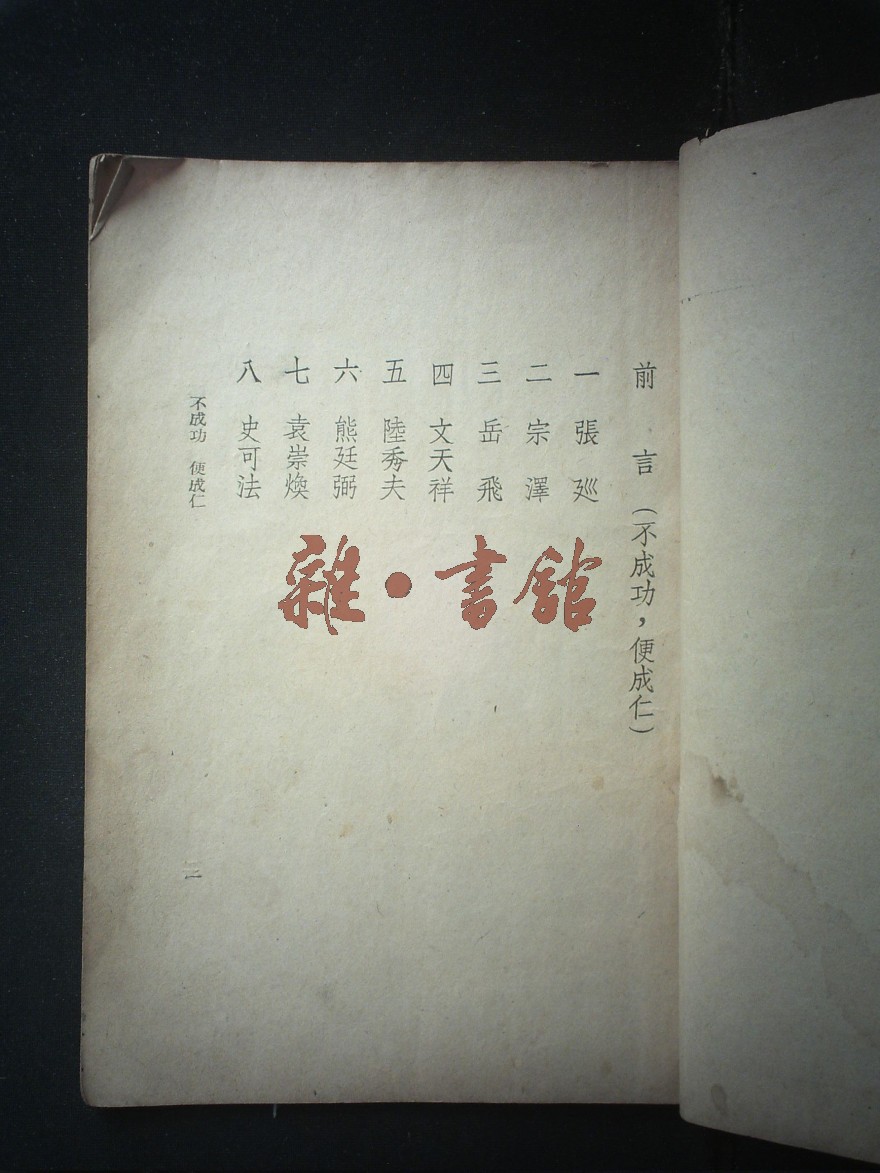 前言（不成功，便成仁）
一 張廵
二 宗澤
三 岳飛
四 文天祥
五 陸秀夫
六 熊廷弼
七 袁崇煥
八 史可法
不成功 便成仁
二
雜·書館